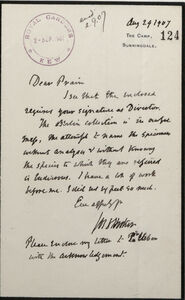 ROYAL GARDENS
2 - SEP. 1907
KEW
and
2.9.07
Aug 29 1907
THE CAMP,
SUNNINGDALE.
124
Dear Prain
I see that the enclosed
requires your signature as Director.
The Berlin collection is in
the attempt to name the specimens
without analyses & without knowing
the species to which they are referred
is ludicrous. I have a lot of work
before me. I did not by post so much.
Ever
J D Hooker
Please enclose my letter to Urban
with the acknowledgement.